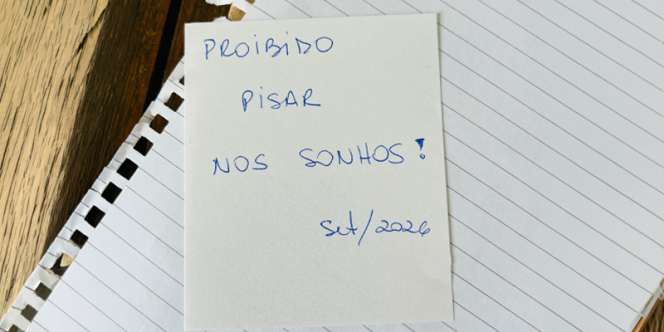 PROIBIDO
PISAR
NOS SONHOS!
set/2026